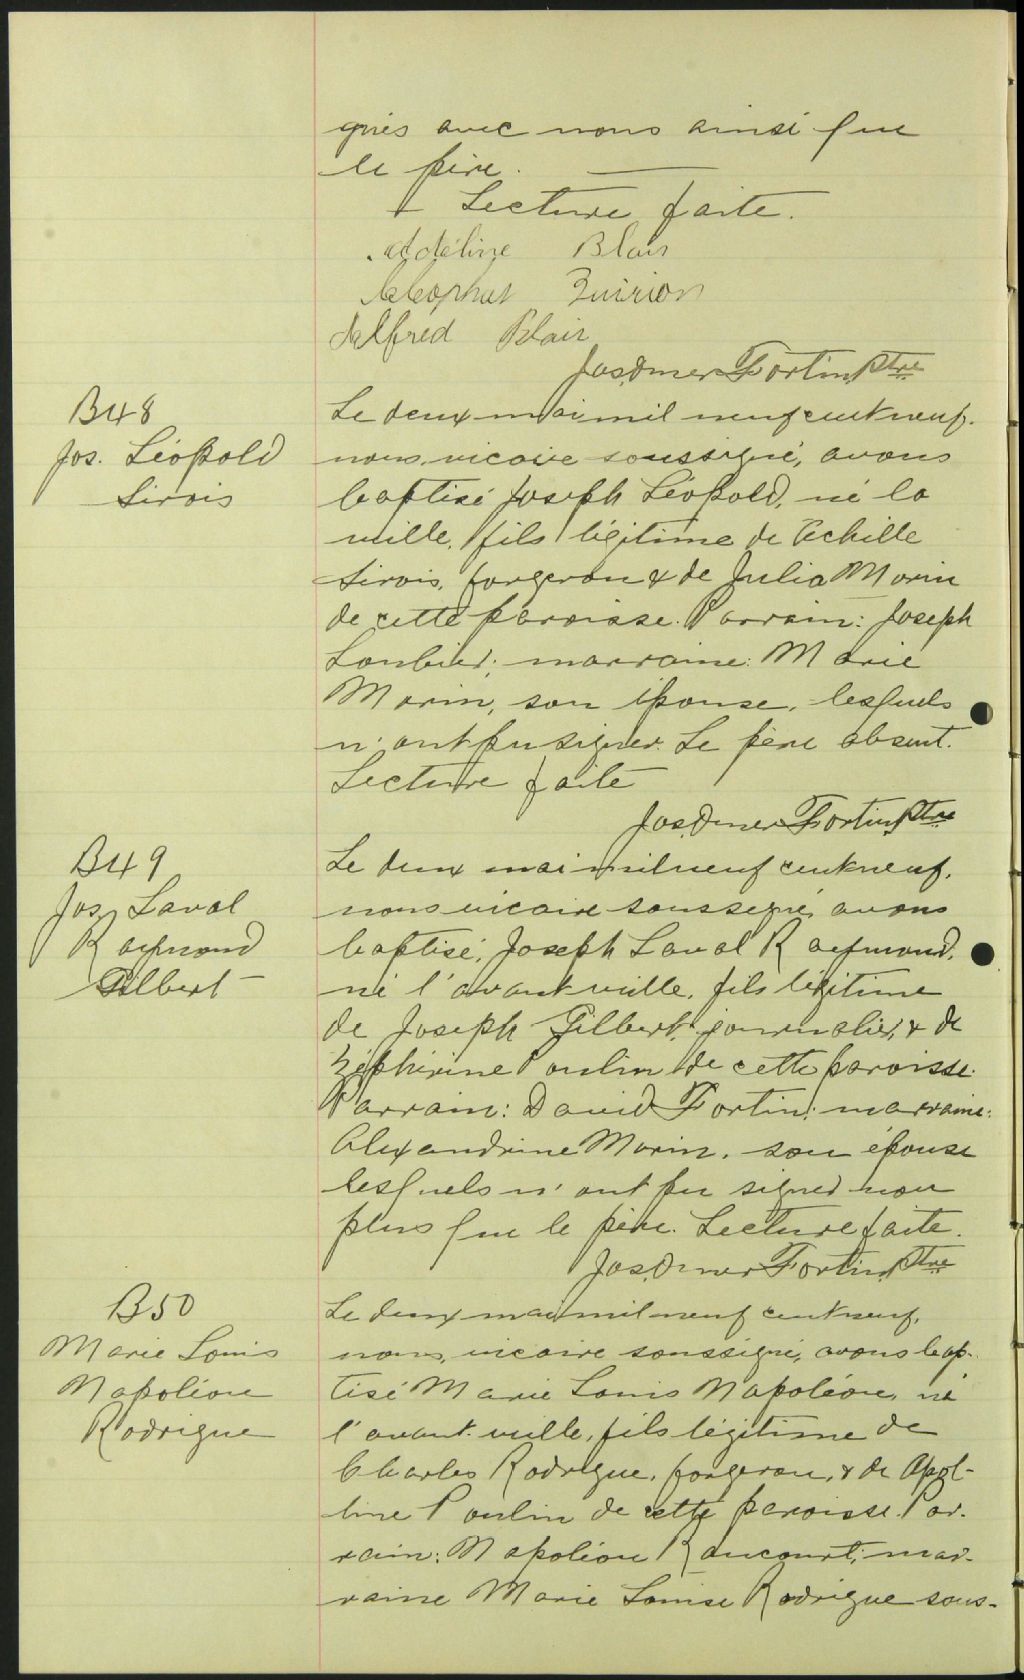 gnés avec nous ainsi que
le père.
Lecture faite.
Adéline Blais
Cléophas Quirion
Alfred Blais
Jos. Omer Fortin, Ptre
B48
Jos. Léopold
Sirois
Le deux mai mil neuf cent neuf,
nous, vicaire soussigné, avons
baptisé Joseph Léopold, né la
veille, fils légitime de Achille
Sirois, forgeron & de Julia Morin
de cette paroisse. Parrain: Joseph
Loubier; marraine: Marie
Morin, son épouse, lesquels
n'ont pu signer. Le père absent.
Lecture faite
Jos. Omer Fortin, Ptre
B49
Jos. Laval
Raymond
Gilbert
Le deux mai mil neuf cent neuf,
nous vicaire soussigné, avons
baptisé, Joseph Laval Raymond,
né l'avant veille, fils légitime
de Joseph Gilbert, journalier, & de
Zéphirine Poulin de cette paroisse.
Parrain: David Fortin; marraine:
Alexandrine Morin, son épouse
lesquels n'ont pu signer non
plus que le père. Lecture faite.
Jos. Omer Fortin, Ptre
B50
Marie Louis
Napoléon
Rodrigue
Le deux mai mil neuf cent neuf,
nous, vicaire soussigné, avons bap-
tisé Marie Louis Napoléon, né
l'avant-veille, fils légitime de
Charles Rodrigue, forgeron, & de Apol-
line Poulin de cette paroisse. Par-
rain: Napoléon Rancourt; mar-
raine Marie Louise Rodrigue sous-